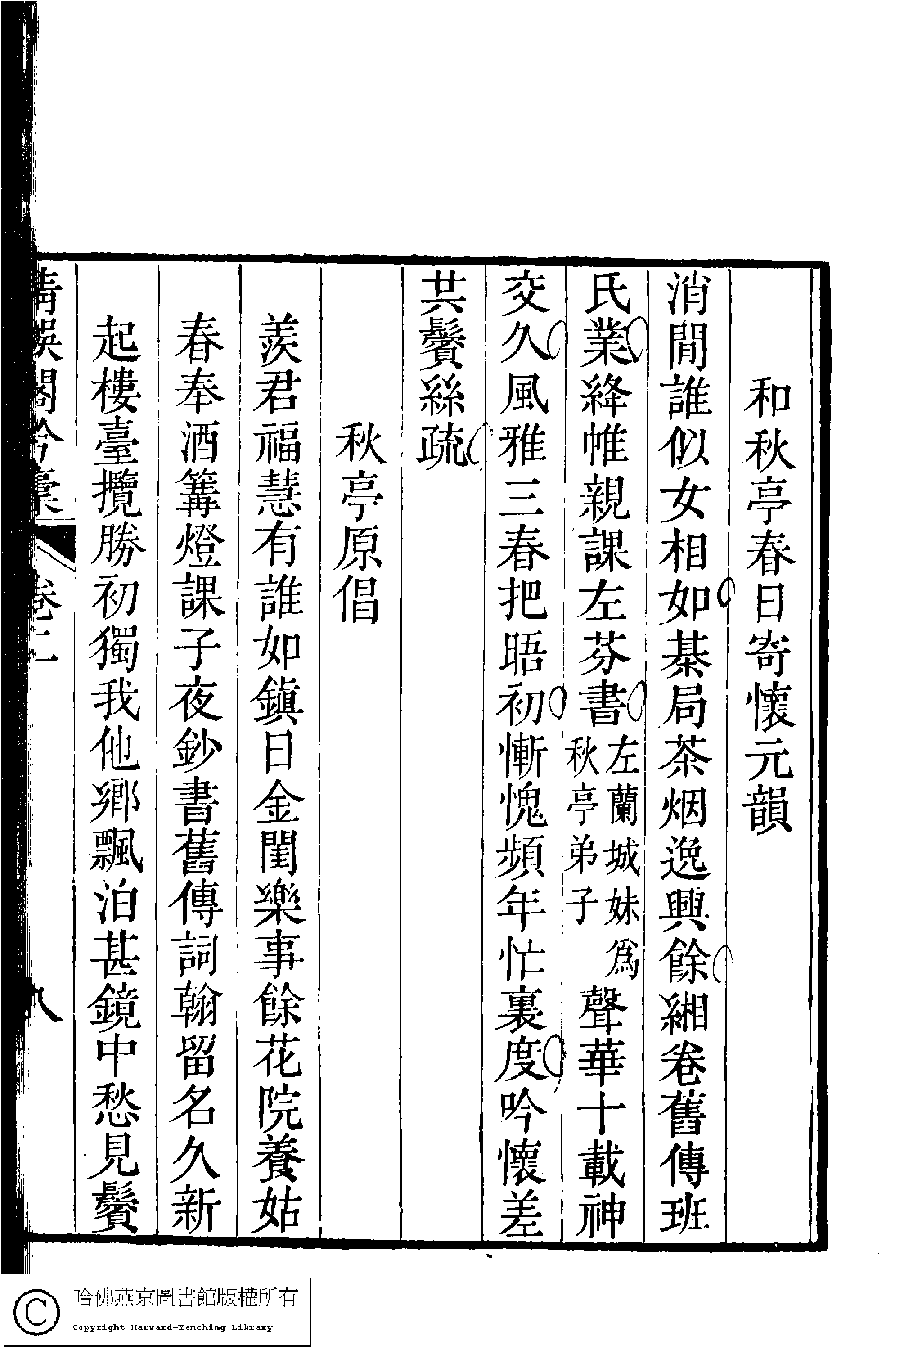 和秋亭春日寄懷元韻
消閒誰似女相如棊局茶烟逸興餘緗卷舊傳班
氏業絳帷親課左芬書左蘭城妹爲秋亭弟子聲華十載神
交久風雅三春把晤初慚愧頻年忙裏度吟懷差
共鬢絲疏
秋亭原倡
羨君福慧有誰如鎮日金閨樂事餘花院養姑
春奉酒篝燈課子夜鈔書舊傳詞翰留名久新
起樓臺攬勝初獨我他鄉飄泊甚鏡中愁見鬢
清娛閣吟藁
卷二
八
哈佛燕京圖書館版權所有
Copyright Harvard-Yenching Library